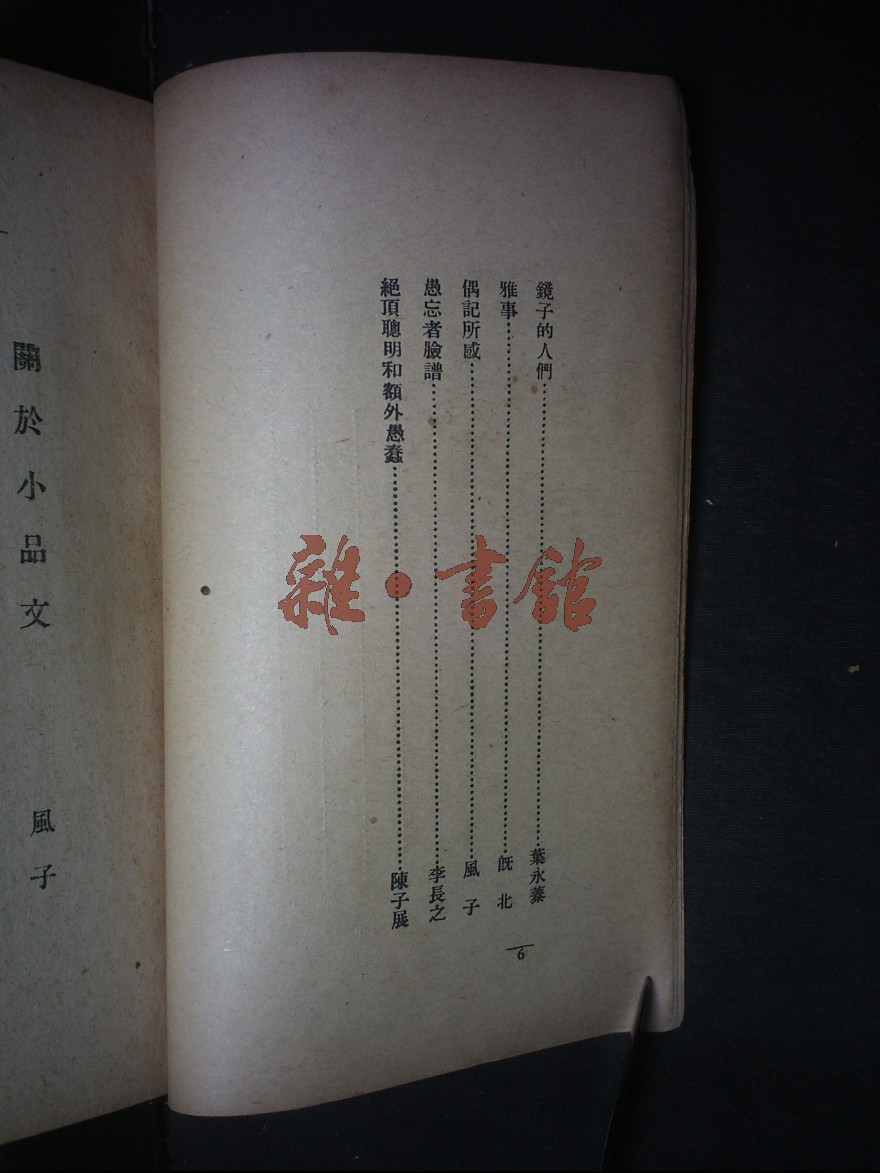 鏡子的人們……葉永蓁
雅事……旣北
偶記所感……風子
愚忘者臉譜……李長之
絕頂聰明和額外愚蠢……陳子展
6
關於小品文
風子
雜·書館